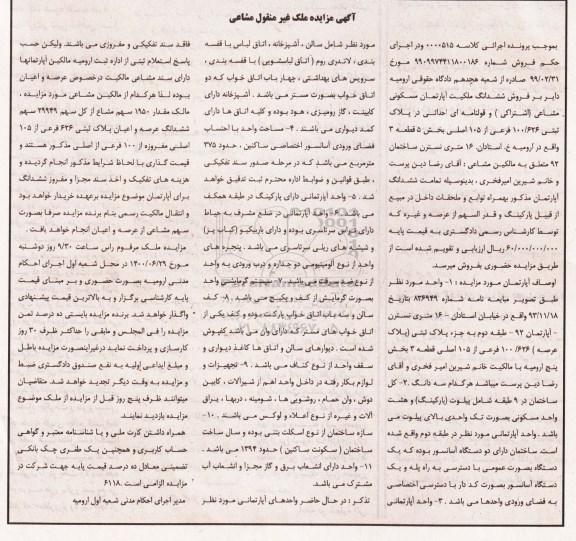 آگهی مزایده ملک غیر منقول مشاعی
بموجب پرونده اجرائی کلاسه ۰۰۰۰۵۱۵ ودر اجرای
حکم فروش شماره ۹۹۰۹۹۷۴۴۱۱۸۰۰۱۸۶ مورخ
۹۹/۰۲/۳۱ صادره از شعبه هجدهم دادگاه حقوقی ارومیه
دایر بر فروش ششدانگ ملکیت آپارتمان مسکونی
مشاعی (اشتراکی) و قولنامه ای احداثی در پلاک
ثبتی ۱۰۰/۶۲۶ فرعی از ۱۰۵ اصلی بخش ۵ قطعه ۳
واقع در ارومیه خ. استادان. ۱۶ متری نسترن ساختمان
۹۲ متعلق به مالکین مشاعی: آقای رضا دین پرست
و خانم شیرین امیرفخری، بدینوسیله تمامت ششدانگ
آپارتمان مذکور بهمراه توابع و ملحقات داخل در مبیع
از قبیل پارکینگ و قدر السهم از عرصه و غیره که
توسط کارشناس رسمی دادگستری به قیمت پایه
۶۰/۰۰۰/۰۰۰/۰۰۰ ریال ارزیابی و تقویم شده است از
طریق مزایده حضوری بفروش میرسد.
اوصاف آپارتمان مورد مزایده: ۱- واحد مورد نظر
طبق تصویر مبایعه نامه شماره ۸۳۶۹۴۹ بتاریخ
۹۳/۱۱/۱۸ واقع در خیابان استادان – ۱۶ متری نسترن
– آپارتمان ۹۲ – طبقه دوم به جزء پلاک ثبتی (پلاک
عرصه) ۱۰۰/۶۲۶ فرعی از ۱۰۵ اصلی قطعه ۳ بخش
پنج ارومیه با مالکیت خانم شیرین امیر فخری و آقای
رضا دین پرست میباشد هرکدام سه دانگ ۲-کل
ساختمان در ۹ طبقه شامل پیلوت (پارکینگ) و هشت
واحد مسکونی بصورت تک واحدی بالای پیلوت می
باشد. واحد آپارتمانی مورد نظر در طبقه دوم واقع شده
است. ساختمان دارای دو دستگاه آسانسور بوده که یک
دستگاه بصورت عمومی با دسترسی به راه پله و یک
دستگاه آسانسور بصورت کد دار با دسترسی اختصاصی
به فضای ورودی واحدها می باشد. ۳- واحد آپارتمانی
مورد نظر شامل سالن، آشپزخانه، اتاق لباس با قفسه
بندی، لاندری روم (اتاق لباسشویی) با قفسه بندی،
سرویس های بهداشتی، چهار باب اتاق خواب که دو
اتاق خواب بصورت مستر می باشد. آشپزخانه دارای
کابینت، گاز رومیزی، هود بوده و کلیه اتاق ها دارای
کمد دیواری می باشند. ۴- مساحت واحد با احتساب
فضای ورودی آسانسور اختصاصی ساکنین، حدود ۳۷۵
مترمربع می باشد که در مرحله صدور سند تفکیکی
، طبق قوانین و ضوابط اداره محترم ثبت تدقیق خواهد
شد. ۵- واحد آپارتمانی دارای پارکینگ در طبقه همکف
می باشد. ۶- واحد آپارتمانی در ضلع مشرف به حیاط
دارای تراس سرتاسری بوده و دارای باربکیو (کباب پز)
و شیشه های ریلی سرتاسری می باشد. پنجره های
واحد از نوع آلومینیومی دو جداره و درب ورودی به واحد
از نوع ضد سرقت می باشد. ۷- سیستم گرمایشی واحد
بصورت گرمایش از کف و پکیج می باشد. ۸- کف
سالن و سه باب اتاق خواب پارکت بوده و کف یکی از
اتاق خواب های مستر که دارای وان می باشد کفپوش
شده است. دیوارهای سالن و اتاق ها کاغذ دیواری و
سقف واحد از نوع کناف می باشد. ۹- تجهیزات و
لوازم بکار رفته در داخل واحد اهم از شیرآلات، کابین
دوش، وان حمام، روشویی ها، شومینه، دربها، یراق
آلات و غیره از نوع اعلاء و لوکس می باشند. ۱۰-
سازه ساختمان از نوع اسکلت بتنی بوده و سال ساخت
ساختمان (سکونت ساکنین) حدود ۱۳۹۴ می باشد.
۱۱- واحد دارای انشعاب برق و گاز مجزا و انشعاب آب
مشترک می باشد.
تذکر: در حال حاضر واحدهای آپارتمانی مورد نظر
فاقد سند تفکیکی و مفروزی می باشند. ولیکن حسب
پاسخ استعلام ثبتی از اداره ثبت ارومیه مالکین آپارتمانها
دارای سند مشاعی مالکیت درخصوص عرصه و اعیان
بوده لذا هرکدام از مالکین مشاعی مورد مزایده،
مالک مقدار ۱۹۵۰ سهم مشاع از کل سهم ۲۹۹۴۹ سهم
ششدانگ عرصه و اعیان پلاک ثبتی ۶۲۶ فرعی از ۱۰۵
اصلی مفروزه از ۱۰۰ فرعی از اصلی مذکور هستند و
قیمت گذاری با لحاظ شرایط مذکور انجام گردیده و
هزینه های تفکیک و اخذ سند مجزا و مفروز ششدانگ
برای آپارتمان موضوع مزایده برعهده خریدار خواهد بود
و انتقال مالکیت رسمی بنام برنده مزایده صرفا بصورت
سهم مشاعی از عرصه و اعیان انجام خواهد یافت.
مزایده ملک مرقوم راس ساعت ۹/۳۰ روز دوشنبه
مورخ ۱۴۰۰/۰۶/۲۹ در محل شعبه اول اجرای احکام
مدنی ارومیه بصورت حضوری و بر مبنای قیمت
پایه کارشناسی برگزار و به بالاترین قیمت پیشنهادی
واگذار خواهد شد. برنده مزایده بایستی ده درصد ثمن
مزایده را فی المجلس و مابقی را حداکثر ظرف ۳۰ روز
کارسازی و پرداخت نماید درغیراینصورت مزایده باطل
و مبلغ ایداعی اولیه به نفع صندوق دادگستری ضبط
و مزایده به وقت دیگر تجدید خواهد شد. متقاضیان
میتوانند ظرف پنج روز قبل از مزایده از ملک موضوع
مزایده بازدید نمایند.
همراه داشتن کارت ملی و یا شناسنامه معتبر و گواهی
حساب کاربری و همچنین یک طغری چک بانکی
تضمینی معادل ده درصد قیمت پایه جهت شرکت در
مزایده الزامی است. ۶۱۱۸
مدیر اجرای احکام مدنی شعبه اول ارومیه